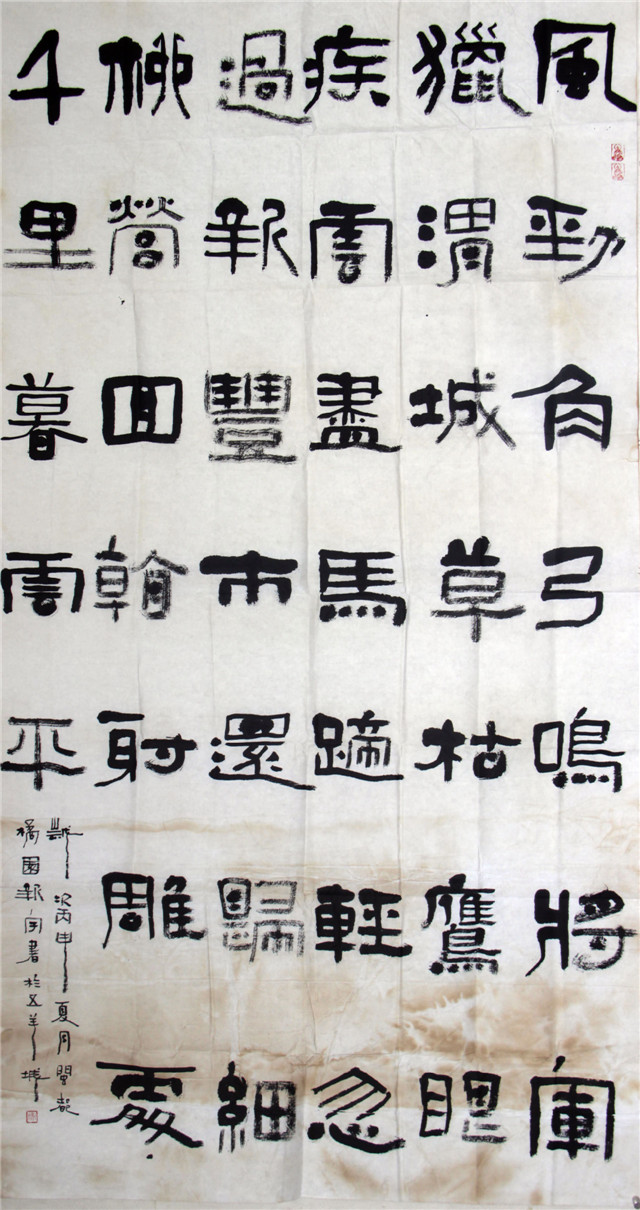 風勁角弓鳴將軍
獵渭城草枯鷹眼
疾雲盡馬蹄輕忽
過新豐市還歸細
柳營回看射雕處
千里暮雲平
歲次丙申夏月閩都
橘園新書於五羊城